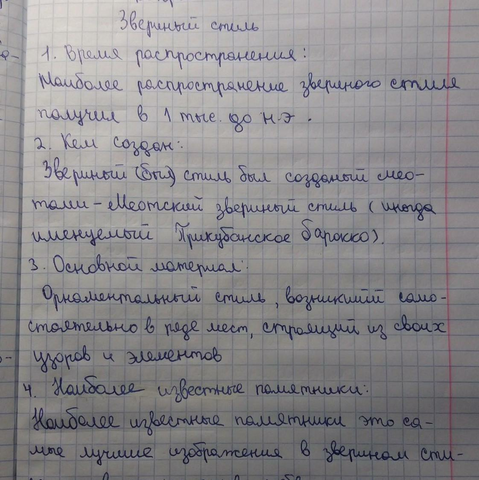 Звериный стиль
1. Время распространения:
Наиболее распространение звериного стиля
получил в 1 тыс. до н.э.
2. Кем создан:
Звериный (был) стиль был созданый мео-
тами - Меотский звериный стиль (иногда
именуемый Прикубанское барокко)
3. Основной материал:
Орнаментальный стиль, возникший само-
стоятельно в ряде мест, строящий из своих
узоров и элементов
4. Наиболее известные памятники:
Наиболее известные памятники это са-
мые лучшие изображения в зверином сти-